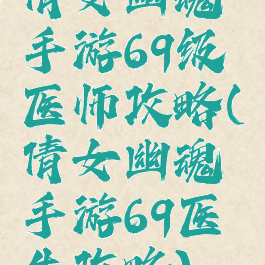 倩女幽魂
手游69级
医师攻略(
倩女幽魂
手游69医
生攻略)